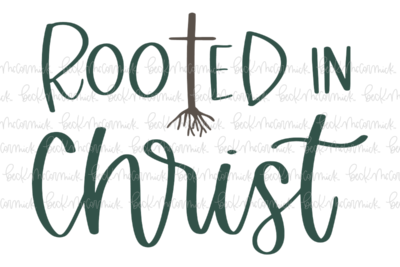 ROOTED IN
Christ